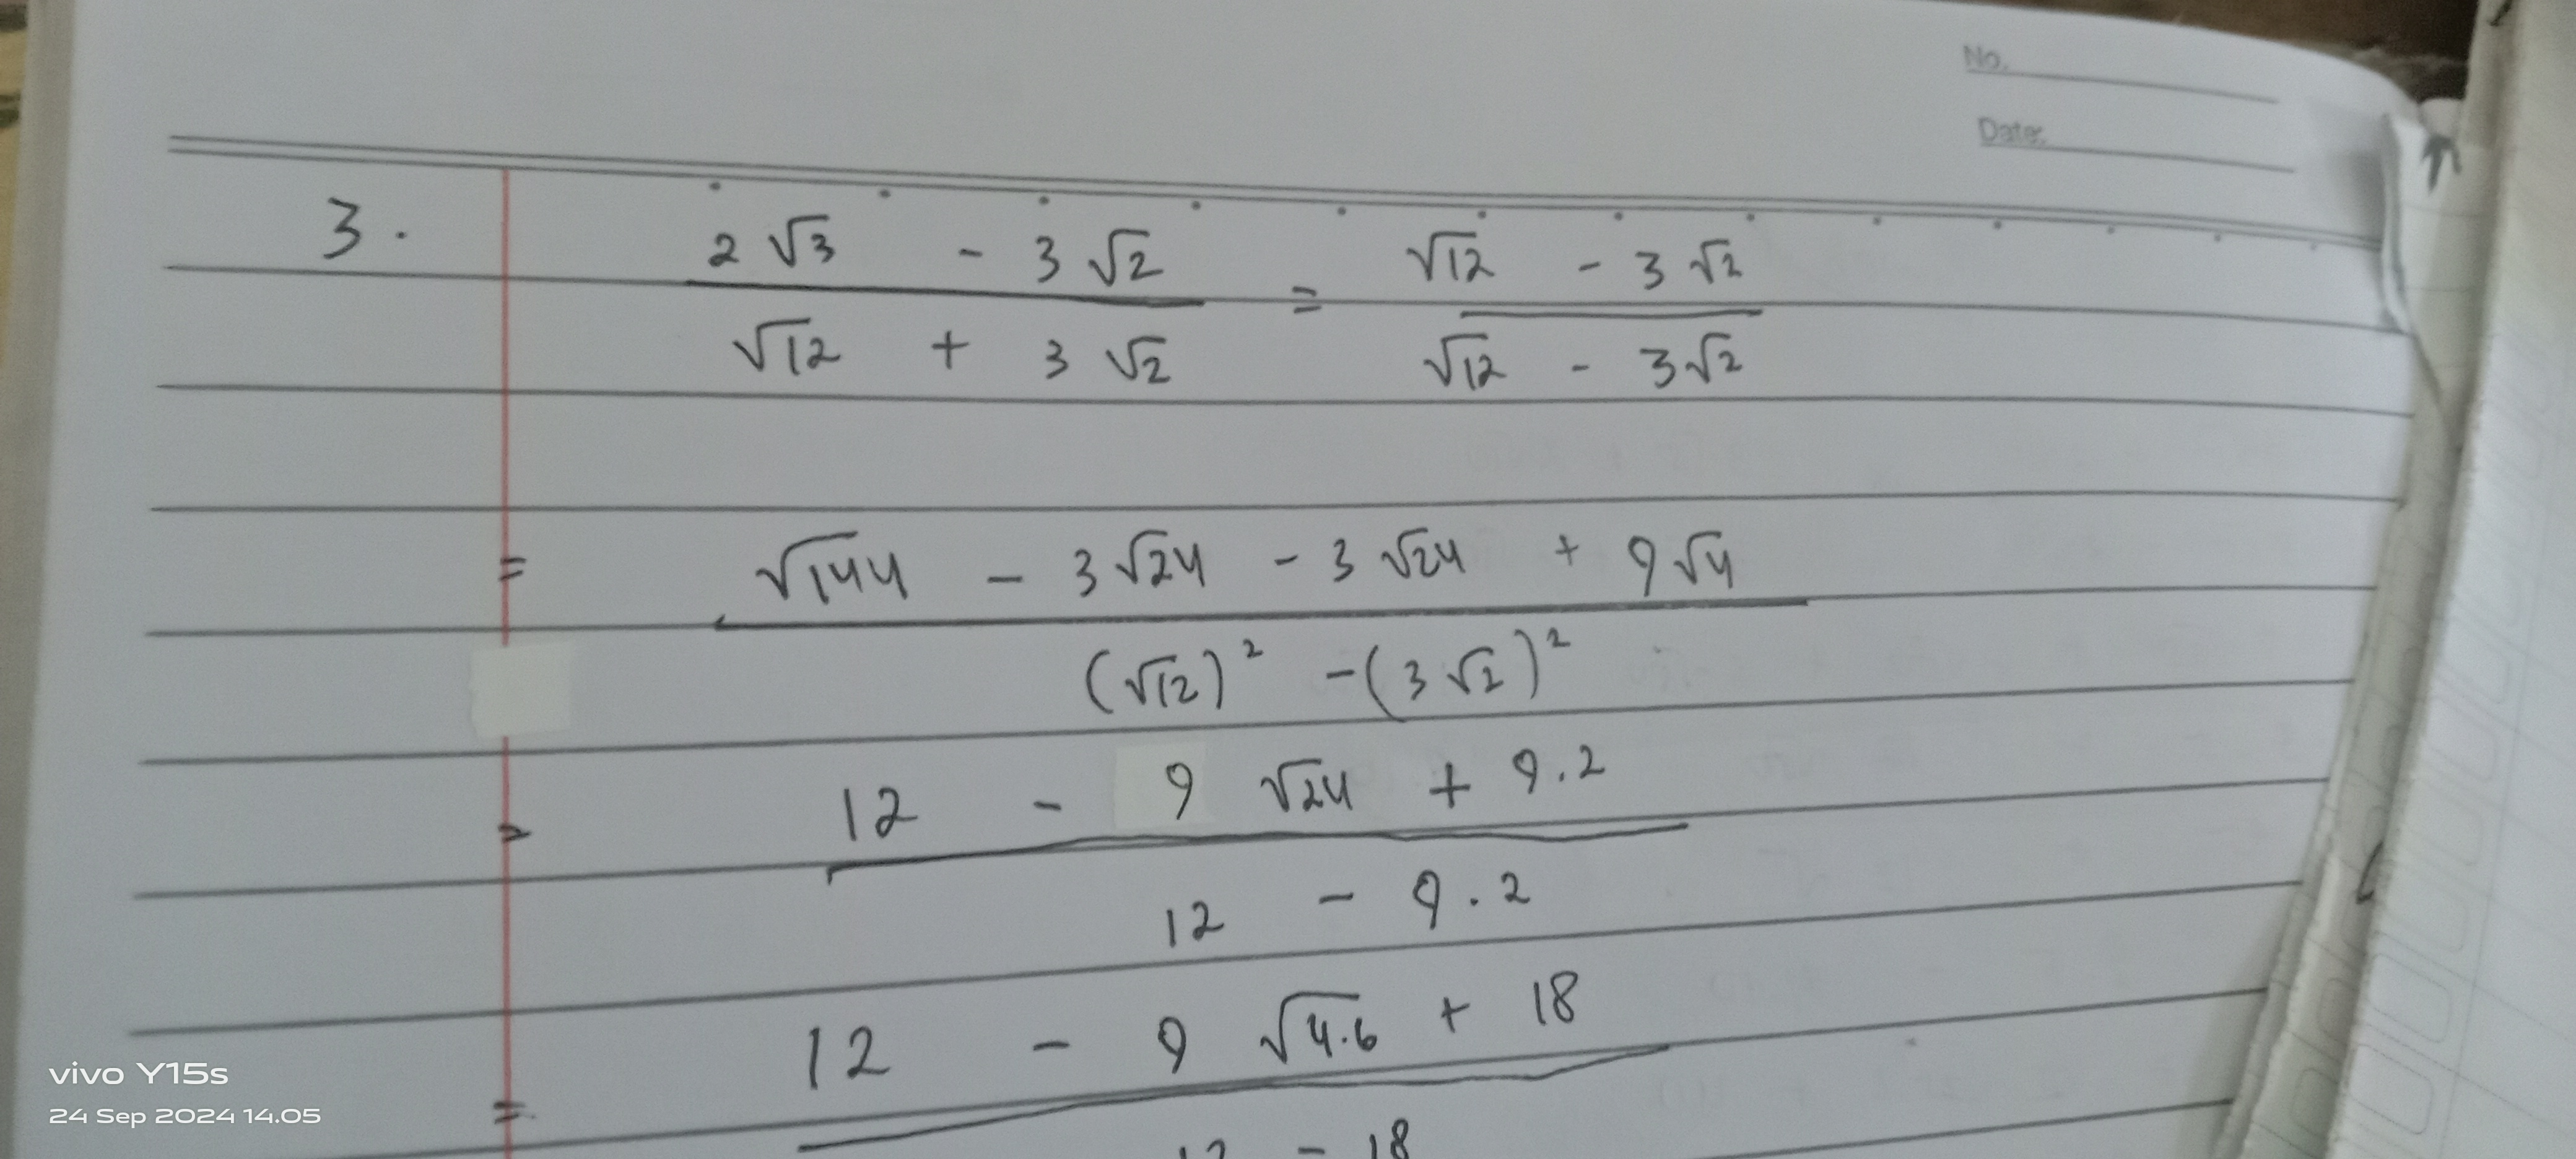 No.
Date:
3. 2√3 - 3√2 = √12 - 3√2
√12 + 3√2 √12 - 3√2
= √144 - 3√24 - 3√24 + 9√4
(√12)² - (3√2)²
= 12 - 9√24 + 9.2
12 - 9.2
= 12 - 9√4.6 + 18
12 - 18
vivo Y15s
24 Sep 2024 14.05